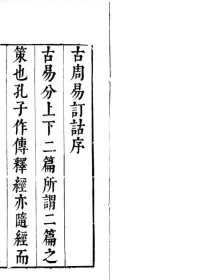 古周易訂詁序
古易分上下二篇所謂二篇之
策也孔子作傳釋經亦隨經而